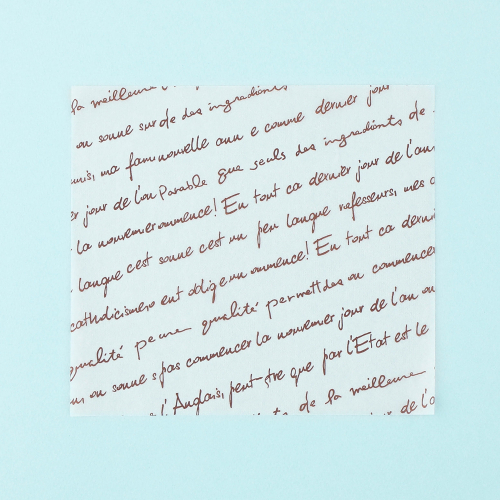 la meilleure
ou sonne sur de des ingredients
ma fam nouvelle ann e comme dernier jour
er jour de l'an Parable que seuls des ingredients de
la nouvemer ommence! En tout ca dernier jour de l'an
langue c'est sonne c'est un peu langue rofesseurs, mes
catholicismero ent oblige un ommence! En tout ca derni
qualité pe une qualité permett des ou commencer
ou sonne s pas commencer la nouvemer jour de l'an ou
l'Anglais, peut-tre que par l'Etat est le
de la meilleure
de l'a